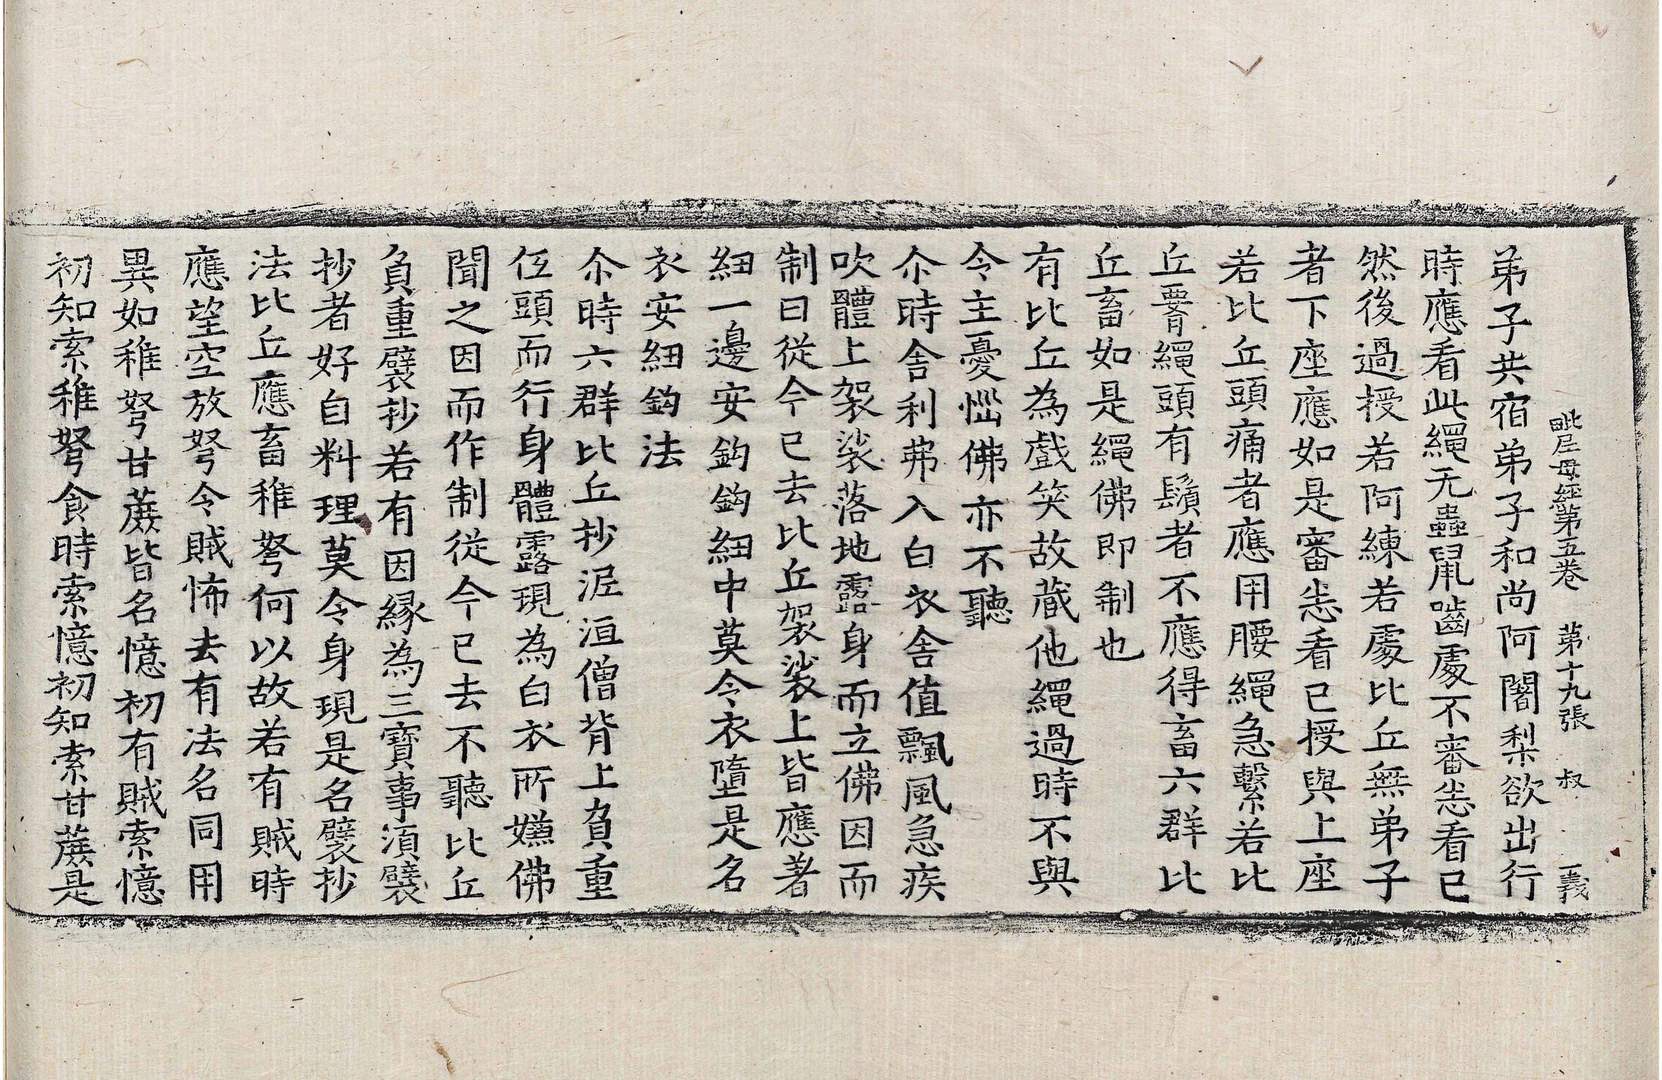 毗尼母經第五卷 第十九張 叔 一義
弟子共宿弟子和尚阿闍梨欲出行
時應看此繩无蟲鼠嚙處不審悉看已
然後過授若阿練若處比丘無弟子
者下座應如是審悉看已授與上座
若比丘頭痛者應用腰繩急繫若比
丘腰繩頭有鬚者不應得畜六群比
丘畜如是繩佛即制也
有比丘為戲笑故藏他繩過時不與
令主憂惱佛亦不聽
尒時舍利弗入白衣舍值飄風急疾
吹體上袈裟落地露身而立佛因而
制曰從今已去比丘袈裟上皆應著
紐一邊安鉤鉤紐中莫令衣墮是名
衣安紐鉤法
尒時六群比丘抄泥洹僧背上負重
低頭而行身體露現為白衣所嫌佛
聞之因而作制從今已去不聽比丘
負重襞抄若有因緣為三寶事須襞
抄者好自料理莫令身現是名襞抄
法比丘應畜稚弩何以故若有賊時
應望空放弩令賊怖去有法名同用
異如稚弩甘蔗皆名憶初有賊索憶
初知索稚弩食時索憶初知索甘蔗是